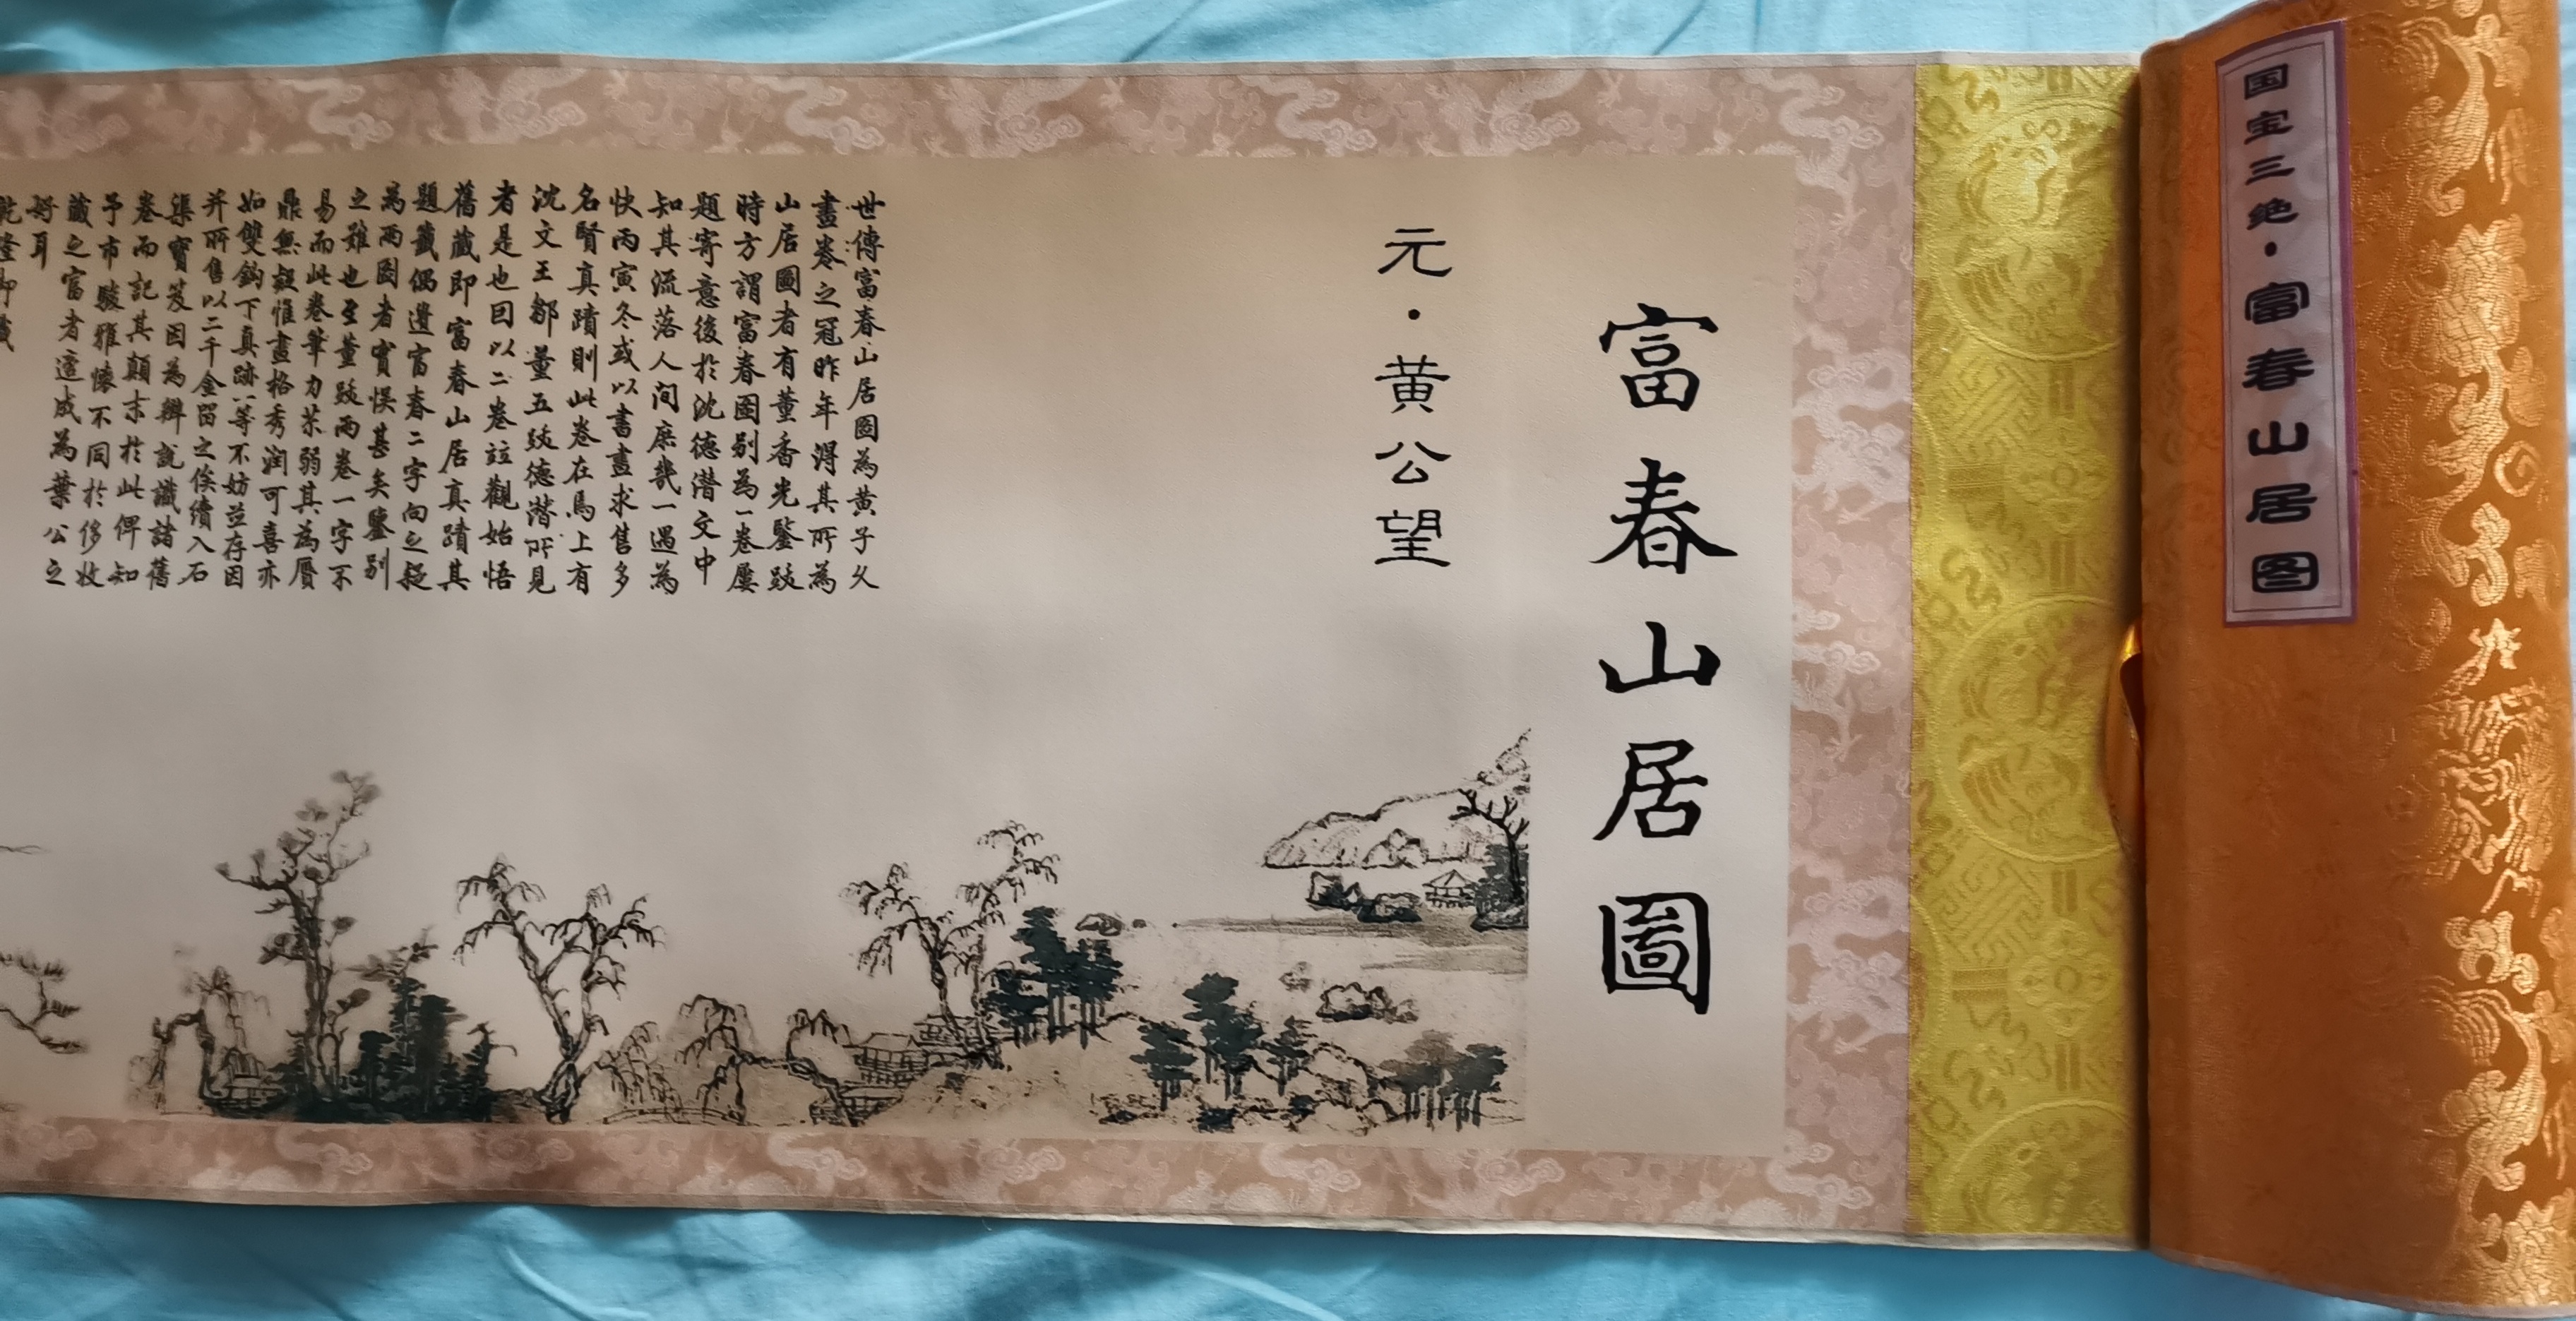 国宝三绝·富春山居图
富春山居圖
元·黄公望
世傳富春山居圖為黄子久
畫卷之冠昨年得其所為
山居圖者有董香光鑒跋
時方謂富春圖别為一卷屢
題寄意後於沈德潜文中
知其流落人间庶幾一遇為
快丙寅冬或以書畫求售多
名賢真蹟則此卷在焉上有
沈文王鄒董五跋德潜所見
者是也因以二卷並觀始悟
舊藏即富春山居真蹟其
題籤偶遺富春二字向之疑
為兩圖者實悮甚矣鑒别
之難也至董跋兩卷一字不
易而此卷筆力苶弱其為贋
鼎無疑惟畫格秀润可喜亦
如雙鈎下真跡一等不妨並存因
并所售以二千金留之俟續入石
渠寶笈因為辨説識諸舊
卷而記其顛末於此俾知
予市駿雅懐不同於侈收
藏之富者適成為葉公之
好耳
乾隆御識